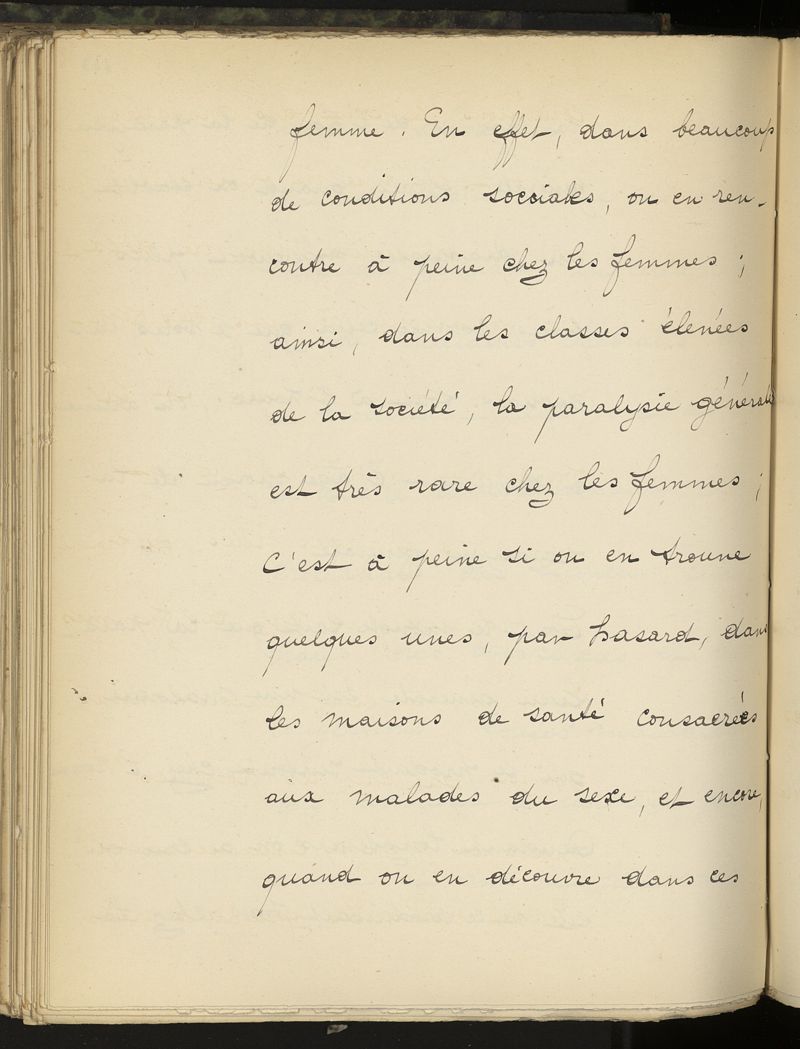 femme. En effet, dans beaucoup
de conditions sociales, on en ren-
contre à peine chez les femmes ;
ainsi, dans les classes élevées
de la société, la paralysie générale
est très rare chez les femmes ;
C'est à peine si on en trouve
quelques unes, par hasard, dans
les maisons de santé consacrées
aux malades du sexe, et encore,
quand on en découvre dans ces